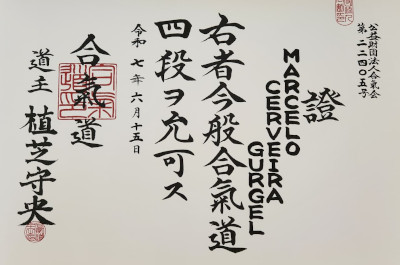 公益財団法人合氣会
第二二四〇五号
證
MARCELO
CERVEIRA
GURGEL
右者今般合氣道
四段ヲ允可ス
令和七年六月十五日
合氣道
道主 植芝守央